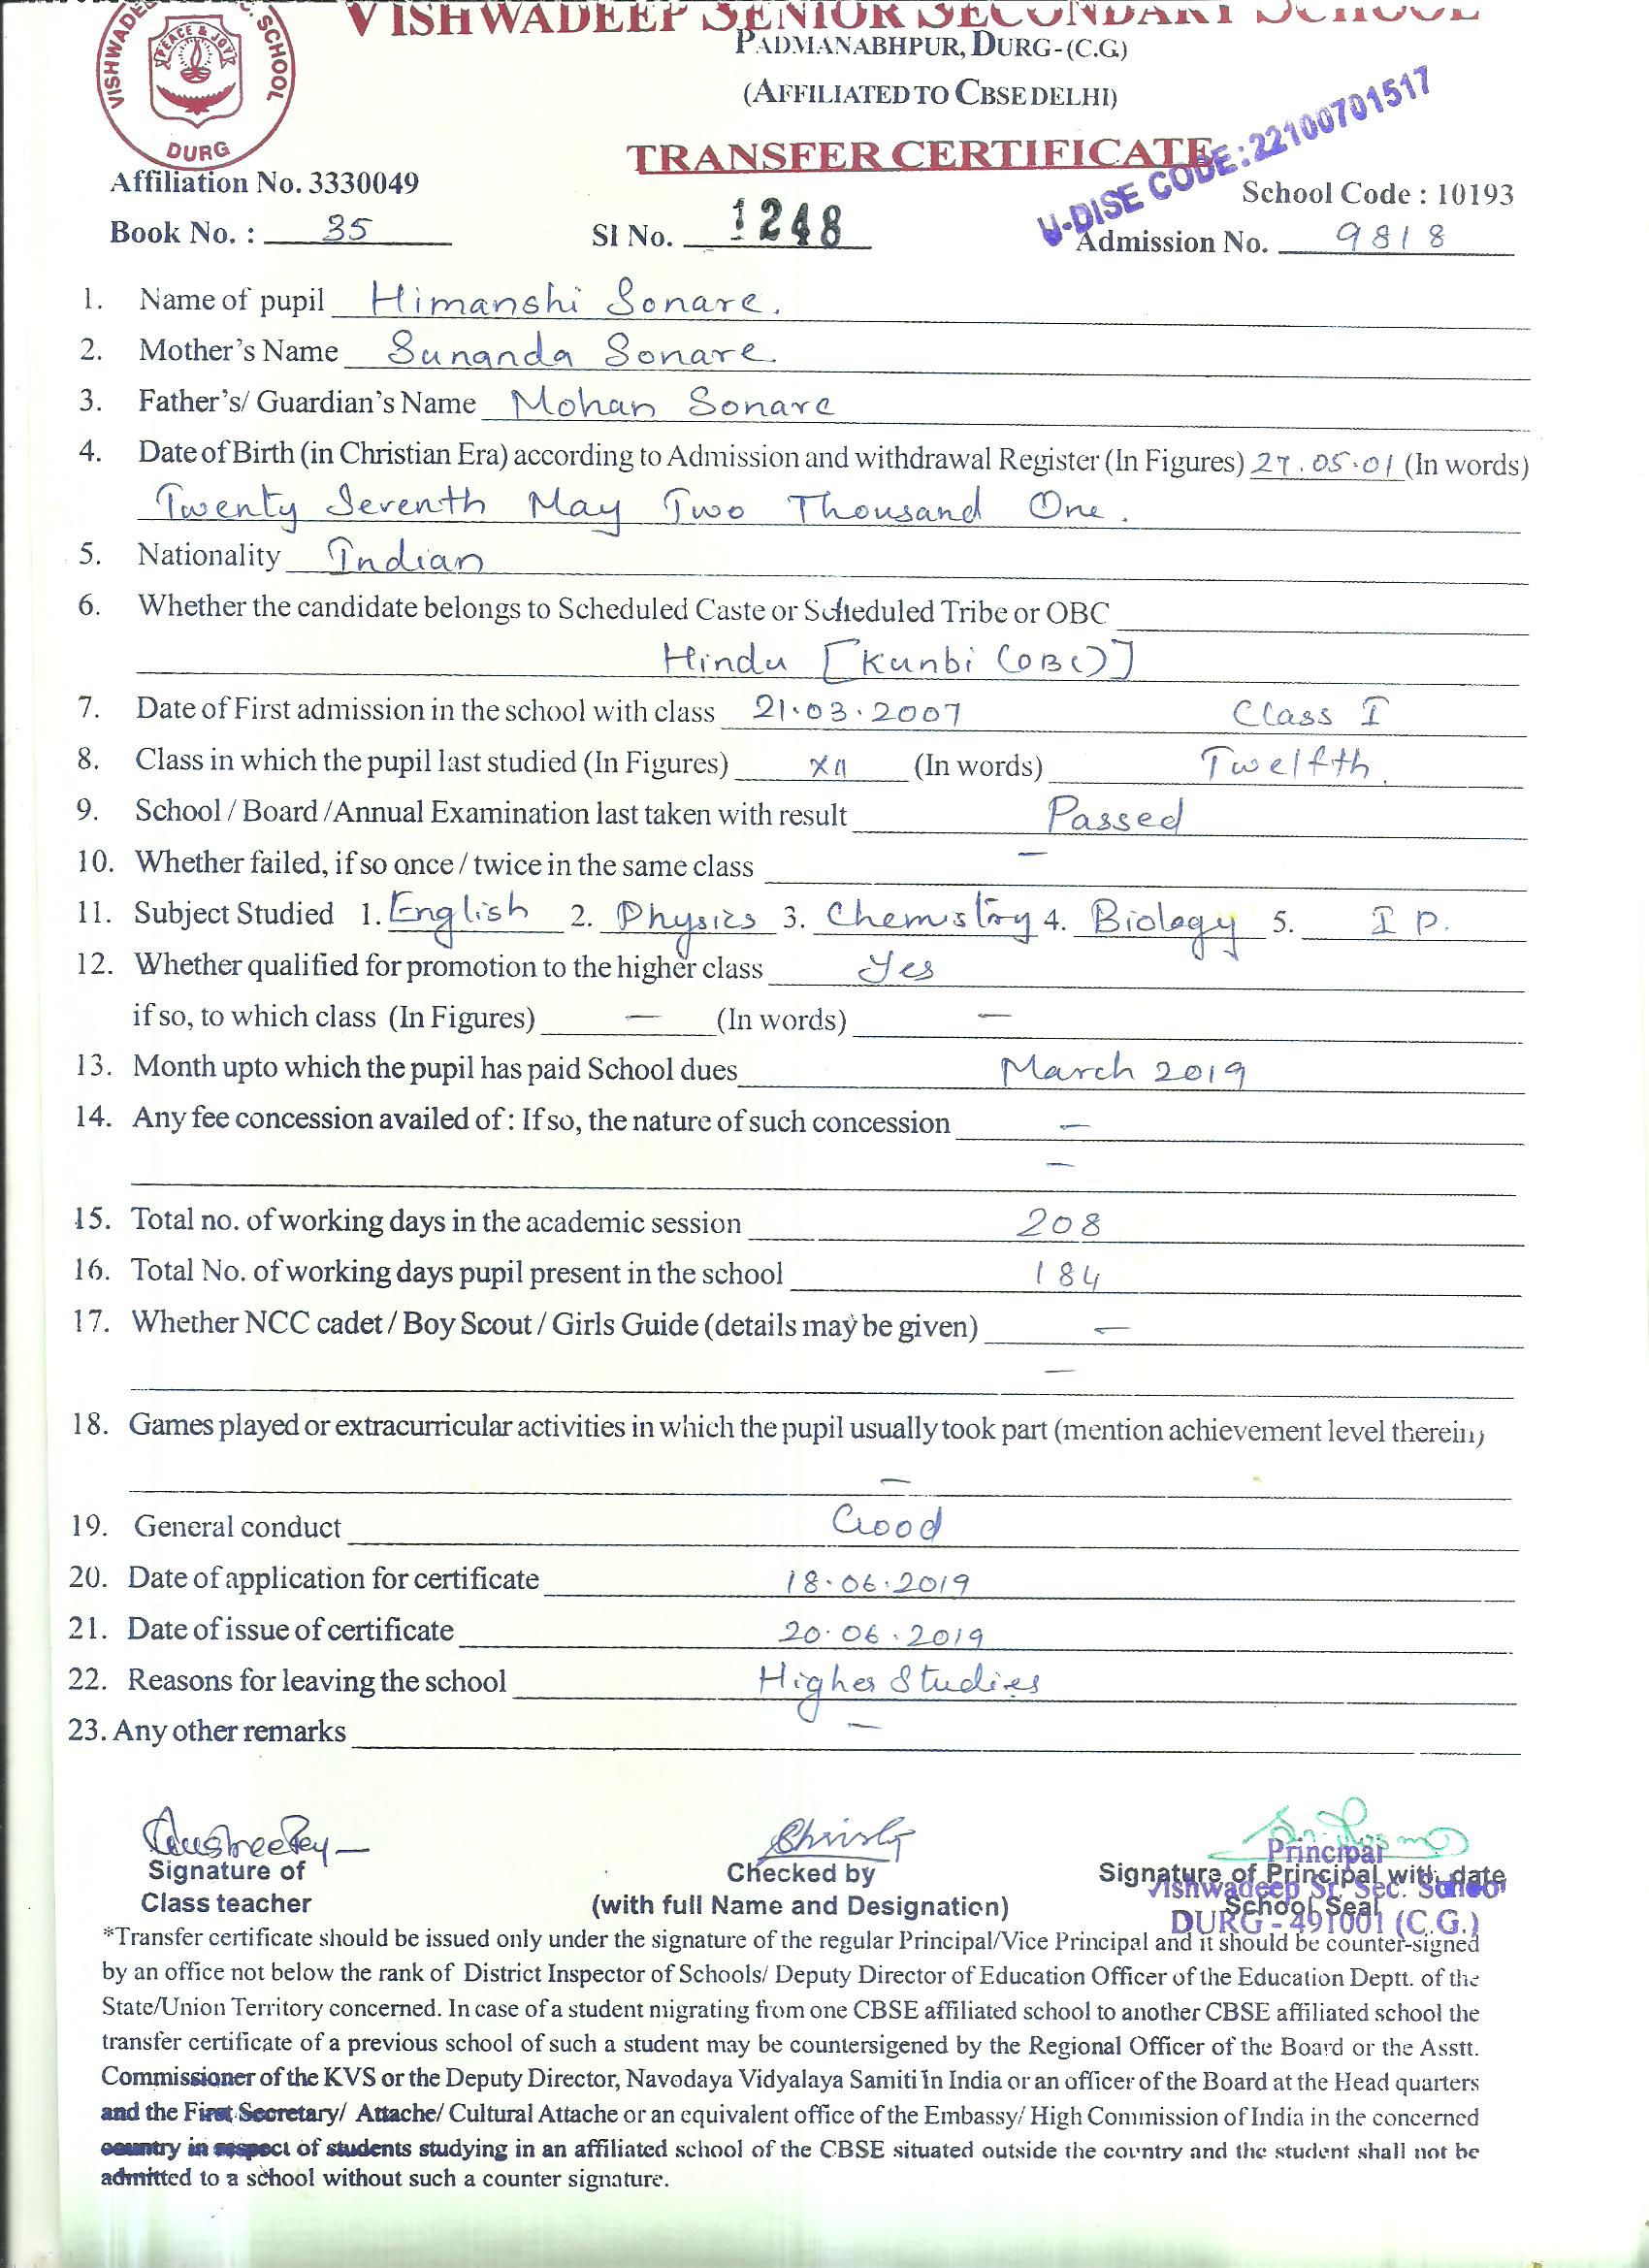 VISHWADEEP SENIOR SECONDARY SCHOOL
PEACE & JOY
SCHOOL
DURG
PADMANABHPUR, DURG-(C.G.)
(AFFILIATED TO CBSE DELHI)
TRANSFER CERTIFICATE
U-DISE CODE: 22100701517
Affiliation No. 3330049 School Code : 10193
Book No. : 35 Sl No. 1248 Admission No. 9818
1. Name of pupil Himanshi Sonare.
2. Mother's Name Sunanda Sonare
3. Father's/ Guardian's Name Mohan Sonare
4. Date of Birth (in Christian Era) according to Admission and withdrawal Register (In Figures) 27.05.01 (In words)
Twenty Seventh May Two Thousand One.
5. Nationality Indian
6. Whether the candidate belongs to Scheduled Caste or Scheduled Tribe or OBC
Hindu [Kunbi (OBC)]
7. Date of First admission in the school with class 21.03.2007 Class I
8. Class in which the pupil last studied (In Figures) XII (In words) Twelfth
9. School / Board /Annual Examination last taken with result Passed
10. Whether failed, if so once / twice in the same class —
11. Subject Studied 1. English 2. Physics 3. Chemistry 4. Biology 5. I P.
12. Whether qualified for promotion to the higher class Yes
if so, to which class (In Figures) — (In words) —
13. Month upto which the pupil has paid School dues March 2019
14. Any fee concession availed of : If so, the nature of such concession —
—
15. Total no. of working days in the academic session 208
16. Total No. of working days pupil present in the school 184
17. Whether NCC cadet / Boy Scout / Girls Guide (details may be given) —
—
18. Games played or extracurricular activities in which the pupil usually took part (mention achievement level therein)
—
19. General conduct Good
20. Date of application for certificate 18.06.2019
21. Date of issue of certificate 20.06.2019
22. Reasons for leaving the school Higher Studies
23. Any other remarks —
Principal
Signature of Checked by Signature of Principal with date
Vishwadeep Sr. Sec. School
Class teacher (with full Name and Designation) School Seal
DURG - 491001 (C.G.)
*Transfer certificate should be issued only under the signature of the regular Principal/Vice Principal and it should be counter-signed
by an office not below the rank of District Inspector of Schools/ Deputy Director of Education Officer of the Education Deptt. of the
State/Union Territory concerned. In case of a student migrating from one CBSE affiliated school to another CBSE affiliated school the
transfer certificate of a previous school of such a student may be countersigned by the Regional Officer of the Board or the Asstt.
Commissioner of the KVS or the Deputy Director, Navodaya Vidyalaya Samiti in India or an officer of the Board at the Head quarters
and the First Secretary/ Attache/ Cultural Attache or an equivalent office of the Embassy/ High Commission of India in the concerned
country in respect of students studying in an affiliated school of the CBSE situated outside the country and the student shall not be
admitted to a school without such a counter signature.